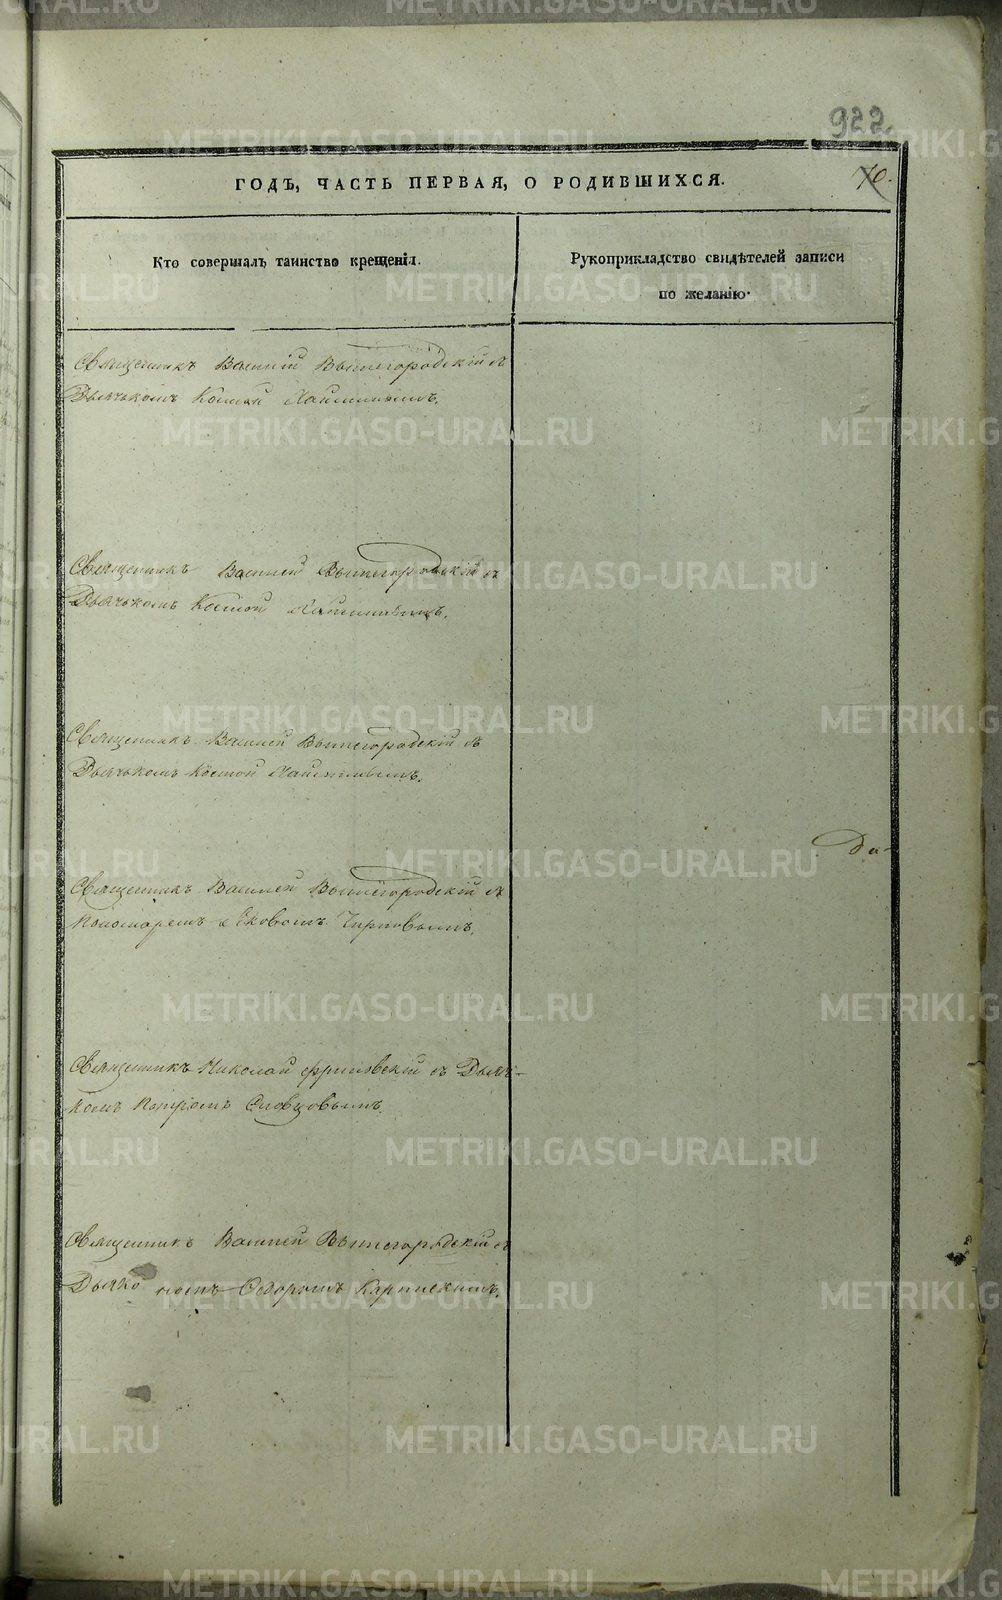 922.
ГОДЪ, ЧАСТЬ ПЕРВАЯ, О РОДИВШИХСЯ.
70.
Кто совершалъ таинство крещенія.
Рукоприкладство свидѣтелей записи
по желанію.
Священникъ Василій Вышегородскій съ
Дьячькомъ Космой
Священникъ Василей Вышегородскій съ
Дьячькомъ Космой
Священникъ Василей Вышегородскій съ
Дьячькомъ Космой
Да-
Священникъ Василей Вышегородскій съ
Пономаремъ Яковомъ
Священникъ Николай съ Дьяч-
комъ Петромъ Словцовымъ.
Священникъ Василей Вышегородскій съ
Дьякономъ Ѳедоромъ Карпинскимъ.
METRIKI.GASO-URAL.RU